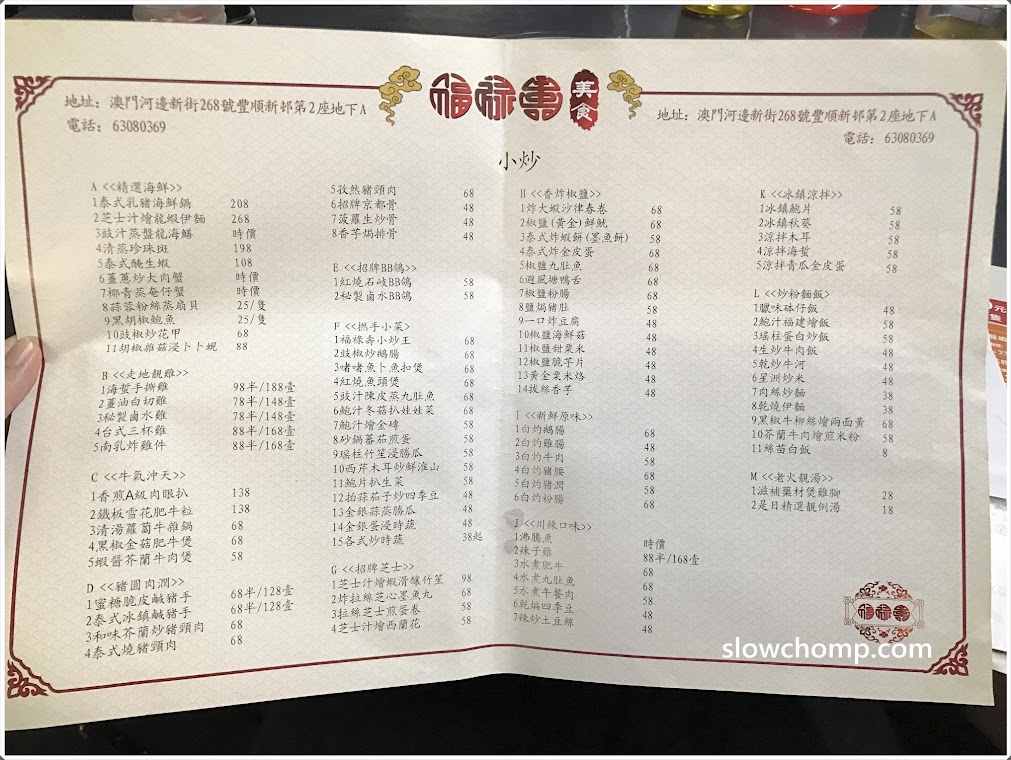 福祿壽 美食
地址：澳門河邊新街268號豐順新邨第2座地下A
電話：63080369
地址：澳門河邊新街268號豐順新邨第2座地下A
電話：63080369
小炒
A <<精選海鮮>>
1泰式乳豬海鮮鍋 208
2芝士汁燴龍蝦伊麵 268
3豉汁蒸盤龍海鱔 時價
4清蒸珍珠斑 198
5泰式醃生蝦 108
6薑蔥炒大肉蟹 時價
7椰青蒸奄仔蟹 時價
8蒜蓉粉絲蒸扇貝 25/隻
9黑胡椒鮑魚 25/隻
10豉椒炒花甲 68
11胡椒雜菇浸卜卜蜆 88
B <<走地靚雞>>
1海蜇手撕雞 98半/188壹
2薑油白切雞 78半/148壹
3秘製鹵水雞 78半/148壹
4台式三杯雞 88半/168壹
5南乳炸雞件 88半/168壹
C <<牛氣沖天>>
1香煎A級肉眼扒 138
2鐵板雪花肥牛粒 138
3清湯蘿蔔牛雜鍋 68
4黑椒金菇肥牛煲 68
5蝦醬芥蘭牛肉煲 58
D <<豬圓肉潤>>
1蜜糖脆皮鹹豬手 68半/128壹
2泰式冰鎮鹹豬手 68半/128壹
3和味芥蘭炒豬頸肉 68
4泰式燒豬頸肉 68
5孜然豬頸肉 68
6招牌京都骨 48
7菠蘿生炒骨 48
8香芋焗排骨 48
E <<招牌BB鴿>>
1紅燒石岐BB鴿 58
2秘製鹵水BB鴿 58
F <<撚手小菜>>
1福祿壽小炒王 68
2豉椒炒鵝腸 68
3啫啫魚卜魚扣煲 68
4紅燒魚頭煲 68
5豉汁陳皮蒸九肚魚 68
6鮑汁冬菇扒娃娃菜 68
7鮑汁燴金磚 58
8砂鍋蕃茄煎蛋 58
9瑤柱竹笙浸勝瓜 58
10西芹木耳炒鮮淮山 58
11鮑片扒生菜 58
12拍蒜茄子炒四季豆 48
13金銀蒜蒸勝瓜 48
14金銀蛋浸時蔬 48
15各式炒時蔬 38起
G <<招牌芝士>>
1芝士汁燴蝦滑釀竹笙 98
2炸拉絲芝心墨魚丸 68
3拉絲芝士煎蛋卷 58
4芝士汁燴西蘭花 58
H <<香炸椒鹽>>
1炸大蝦沙律春卷 68
2椒鹽(黃金)鮮魷 68
3泰式炸蝦餅(墨魚餅) 58
4泰式炸金皮蛋 58
5椒鹽九肚魚 68
6避風塘鴨舌 68
7椒鹽粉腸 68
8鹽焗豬肚 58
9一口炸豆腐 48
10椒鹽海鮮菇 48
11椒鹽甜粟米 48
12椒鹽脆芋片 48
13黃金粟米烙 48
14拔絲香芋 48
I <<新鮮原味>>
1白灼鵝腸 68
2白灼雞腸 48
3白灼牛肉 58
4白灼豬腰 68
5白灼豬潤 58
6白灼粉腸 68
J <<川辣口味>>
1沸騰魚 時價
2辣子雞 88半/168壹
3水煮肥牛 68
4水煮九肚魚 68
5水煮午餐肉 58
6乾煸四季豆 48
7辣炒土豆絲 48
K <<冰鎮涼拌>>
1冰鎮鮑片 58
2冰鎮秋葵 58
3涼拌木耳 58
4涼拌海蜇 58
5涼拌青瓜金皮蛋 58
L <<炒粉麵飯>>
1臘味砵仔飯 48
2鮑汁福建燴飯 58
3瑤柱蛋白炒飯 58
4生炒牛肉飯 48
5乾炒牛河 48
6星洲炒米 48
7肉絲炒麵 38
8乾燒伊麵 38
9黑椒牛柳絲燴兩面黃 68
10芥蘭牛肉燴煎米粉 58
11絲苗白飯 8
M <<老火靚湯>>
1滋補藥材煲雞腳 28
2是日精選靚例湯 18
福祿壽
slowchomp.com